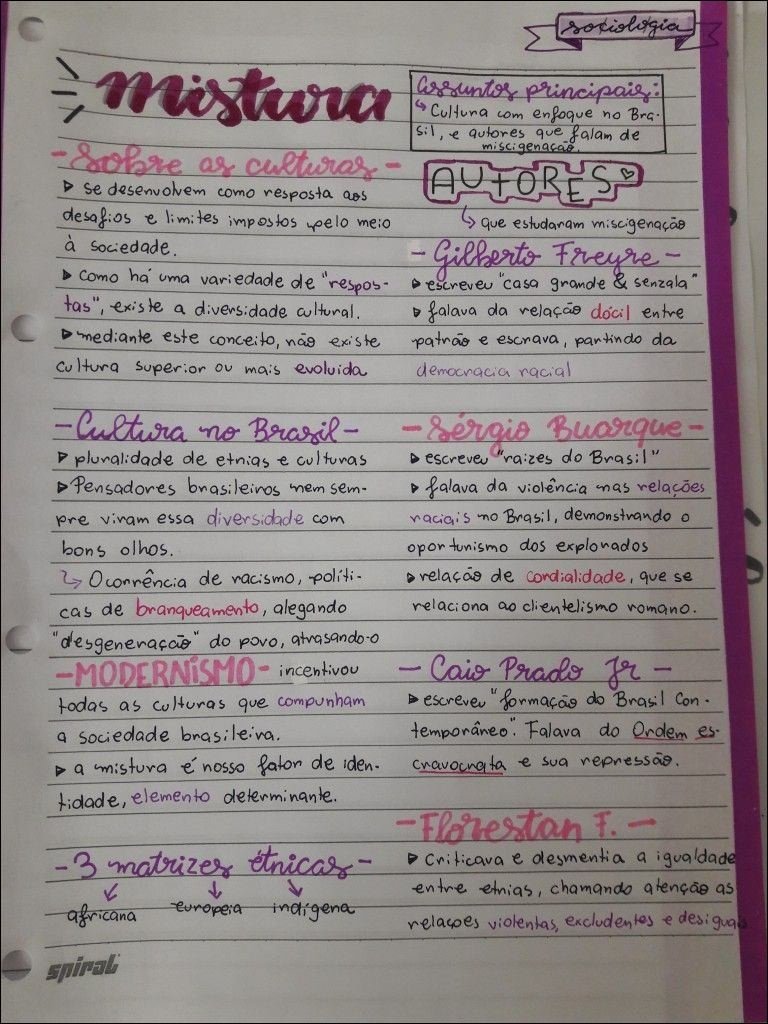 sociologia
mistura
Assuntos principais:
↳ Cultura com enfoque no Bra-
sil, e autores que falam de
miscigenação.
- Sobre as culturas -
▷ se desenvolvem como resposta aos
desafios e limites impostos pelo meio
à sociedade.
▷ como há uma variedade de "respos-
tas", existe a diversidade cultural.
▷ mediante este conceito, não existe
cultura superior ou mais evoluida
- Cultura no Brasil -
▷ pluralidade de etnias e culturas
▷ Pensadores brasileiros nem sem-
pre viram essa diversidade com
bons olhos.
↳ Ocorrência de racismo, políti-
cas de branqueamento, alegando
"desgeneração" do povo, atrasando-o
- MODERNISMO - incentivou
todas as culturas que compunham
a sociedade brasileira.
▷ a mistura é nosso fator de iden-
tidade, elemento determinante.
- 3 matrizes étnicas -
africana europeia indígena
AUTORES
↳ que estudaram miscigenação
- Gilberto Freyre -
▷ escreveu "casa grande & senzala"
▷ falava da relação dócil entre
patrão e escrava, partindo da
democracia racial
- Sérgio Buarque -
▷ escreveu "raizes do Brasil"
▷ falava da violência nas relações
raciais no Brasil, demonstrando o
oportunismo dos explorados
▷ relação de cordialidade, que se
relaciona ao clientelismo romano.
- Caio Prado Jr -
▷ escreveu "formação do Brasil Con-
temporâneo". Falava do Ordem es-
cravocrata e sua repressão.
- Florestan F. -
▷ Criticava e desmentia a igualdade
entre etnias, chamando atenção as
relações violentas, excludentes e desiguais
spiral